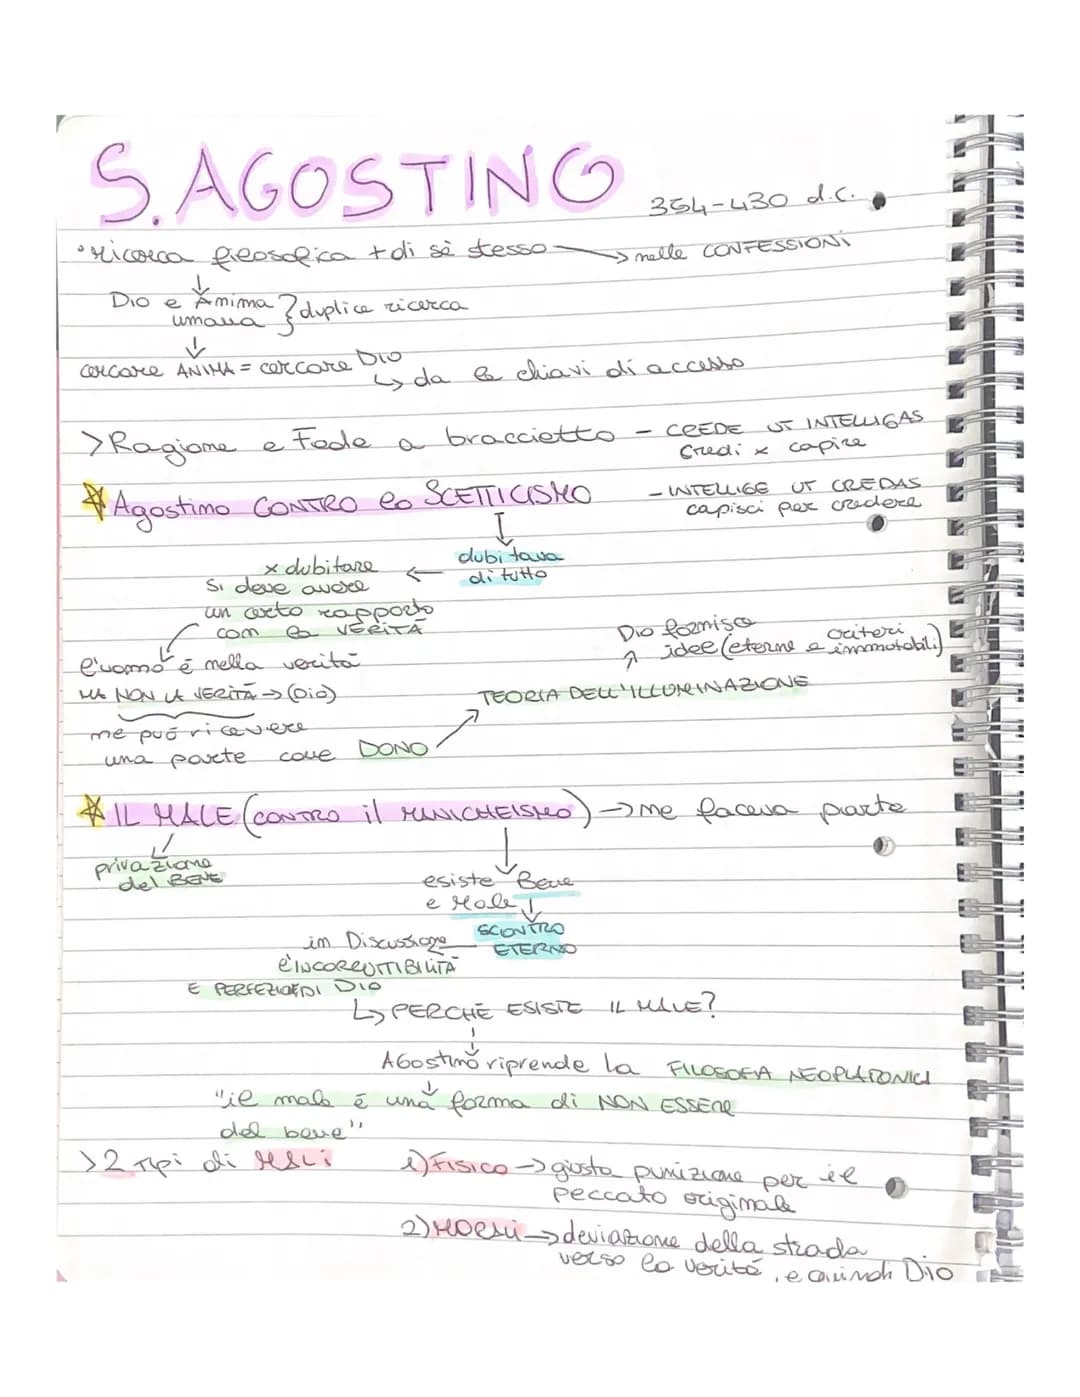 S. AGOSTINO 354-430 d.C.
•ricerca filosofica + di sè stesso → nelle CONFESSIONI
↓
Dio e Anima umana } duplice ricerca
↓
cercare ANIMA = cercare DIO
↳ da le chiavi di accesso
> Ragione e Fede a braccietto - CREDE UT INTELLIGAS
credi x capire
- INTELLIGE UT CREDAS
capisci per credere
☆ Agostino CONTRO lo SCETTICISMO
↓
dubitava
di tutto
←
x dubitare
si deve avere
un certo rapporto
con la VERITÀ
l'uomo è nella verità
MA NON LA VERITÀ → (Dio)
ne può ricevere
una parte come DONO
↗
TEORIA DELL'ILLUMINAZIONE
↑
Dio fornisce
idee (eterne e criteri immutabili)
☆ IL MALE (CONTRO il MANICHEISMO) → ne faceva parte
↓
privazione
del BENE
↓
esiste Bene
e Male ↓
SCONTRO
ETERNO
in Discussione
l'INCORRUTTIBILITÀ
E PERFEZIONE DI DIO
↳ PERCHÈ ESISTE IL MALE?
↓
AGostino riprende la FILOSOFIA NEOPLATONICI
↓
"il male è una forma di NON ESSERE
del bene"
> 2 Tipi di MALI 1) FISICO → giusta punizione per il
peccato originale
2) MORALI → deviazione della strada
verso la verità, e quindi Dio